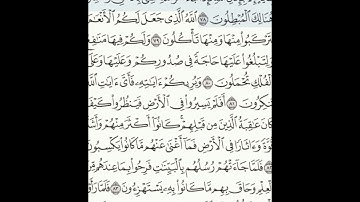 هُنَالِكَ ٱلْمُبْطِلُونَ ٧٨ ٱللَّهُ ٱلَّذِى جَعَلَ لَكُمُ ٱلْأَنْعَـٰمَ
لِتَرْكَبُوا۟ مِنْهَا وَمِنْهَا تَأْكُلُونَ ٧٩ وَلَكُمْ فِيهَا مَنَـٰفِعُ
وَلِتَبْلُغُوا۟ عَلَيْهَا حَاجَةً فِى صُدُورِكُمْ وَعَلَيْهَا وَعَلَى
ٱلْفُلْكِ تُحْمَلُونَ ٨٠ وَيُرِيكُمْ ءَايَـٰتِهِۦ فَأَىَّ ءَايَـٰتِ ٱللَّهِ
تُنكِرُونَ ٨١ أَفَلَمْ يَسِيرُوا۟ فِى ٱلْأَرْضِ فَيَنظُرُوا۟ كَيْفَ
كَانَ عَـٰقِبَةُ ٱلَّذِينَ مِن قَبْلِهِمْ كَانُوٓا۟ أَكْثَرَ مِنْهُمْ وَأَشَدَّ
قُوَّةً وَءَاثَارًا فِى ٱلْأَرْضِ فَمَآ أَغْنَىٰ عَنْهُم مَّا كَانُوا۟ يَكْسِبُونَ
٨٢ فَلَمَّا جَآءَتْهُمْ رُسُلُهُم بِٱلْبَيِّنَـٰتِ فَرِحُوا۟ بِمَا عِندَهُم مِّنَ
ٱلْعِلْمِ وَحَاقَ بِهِم مَّا كَانُوا۟ بِهِۦ يَسْتَهْزِءُونَ ٨٣ فَلَمَّا رَأَوْا۟